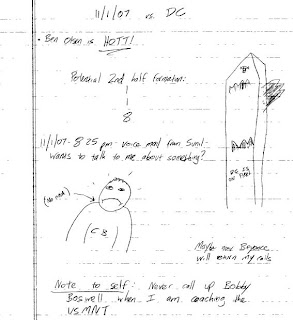 11/1/07 vs. DC
• Ben Olsen is HOTT!
Potential 2nd half formation:
8
11/1/07 - 8:25 pm - voice mail from Sunil -
wants to talk to me about something?
(No idea)
(C8)
Maybe now Beyonce
will return my calls
Note to self: Never call up Bobby
Boswell when I am coaching the
US MNT